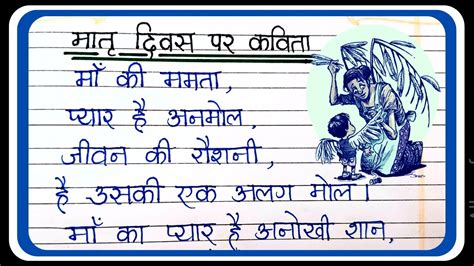 मातृ दिवस पर कविता
माँ की ममता,
प्यार है अनमोल,
जीवन की रौशनी,
है उसकी एक अलग मोल।
माँ का प्यार है अनोखी शान,